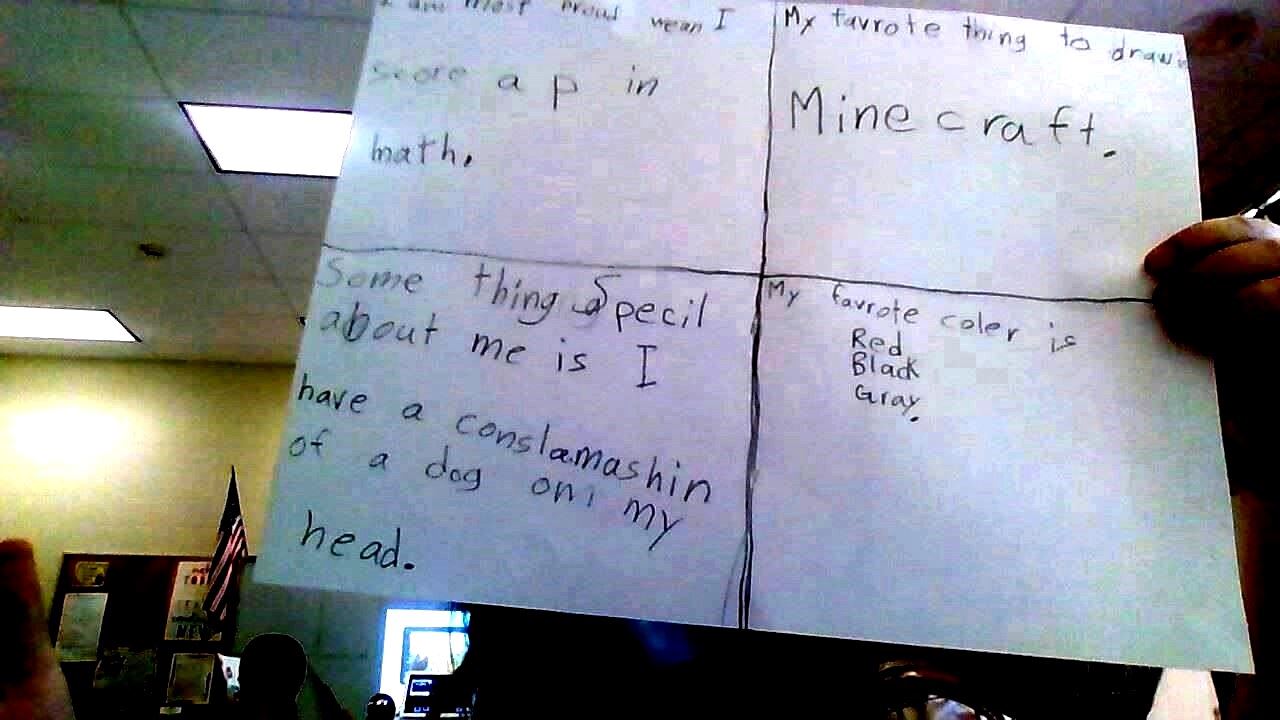 I am most proud wean I
score a p in
math.
My favrote thing to draw
Minecraft.
Some thing Specil
about me is I
have a conslamashin
of a dog on my
head.
My favrote coler is
Red
Black
Gray.